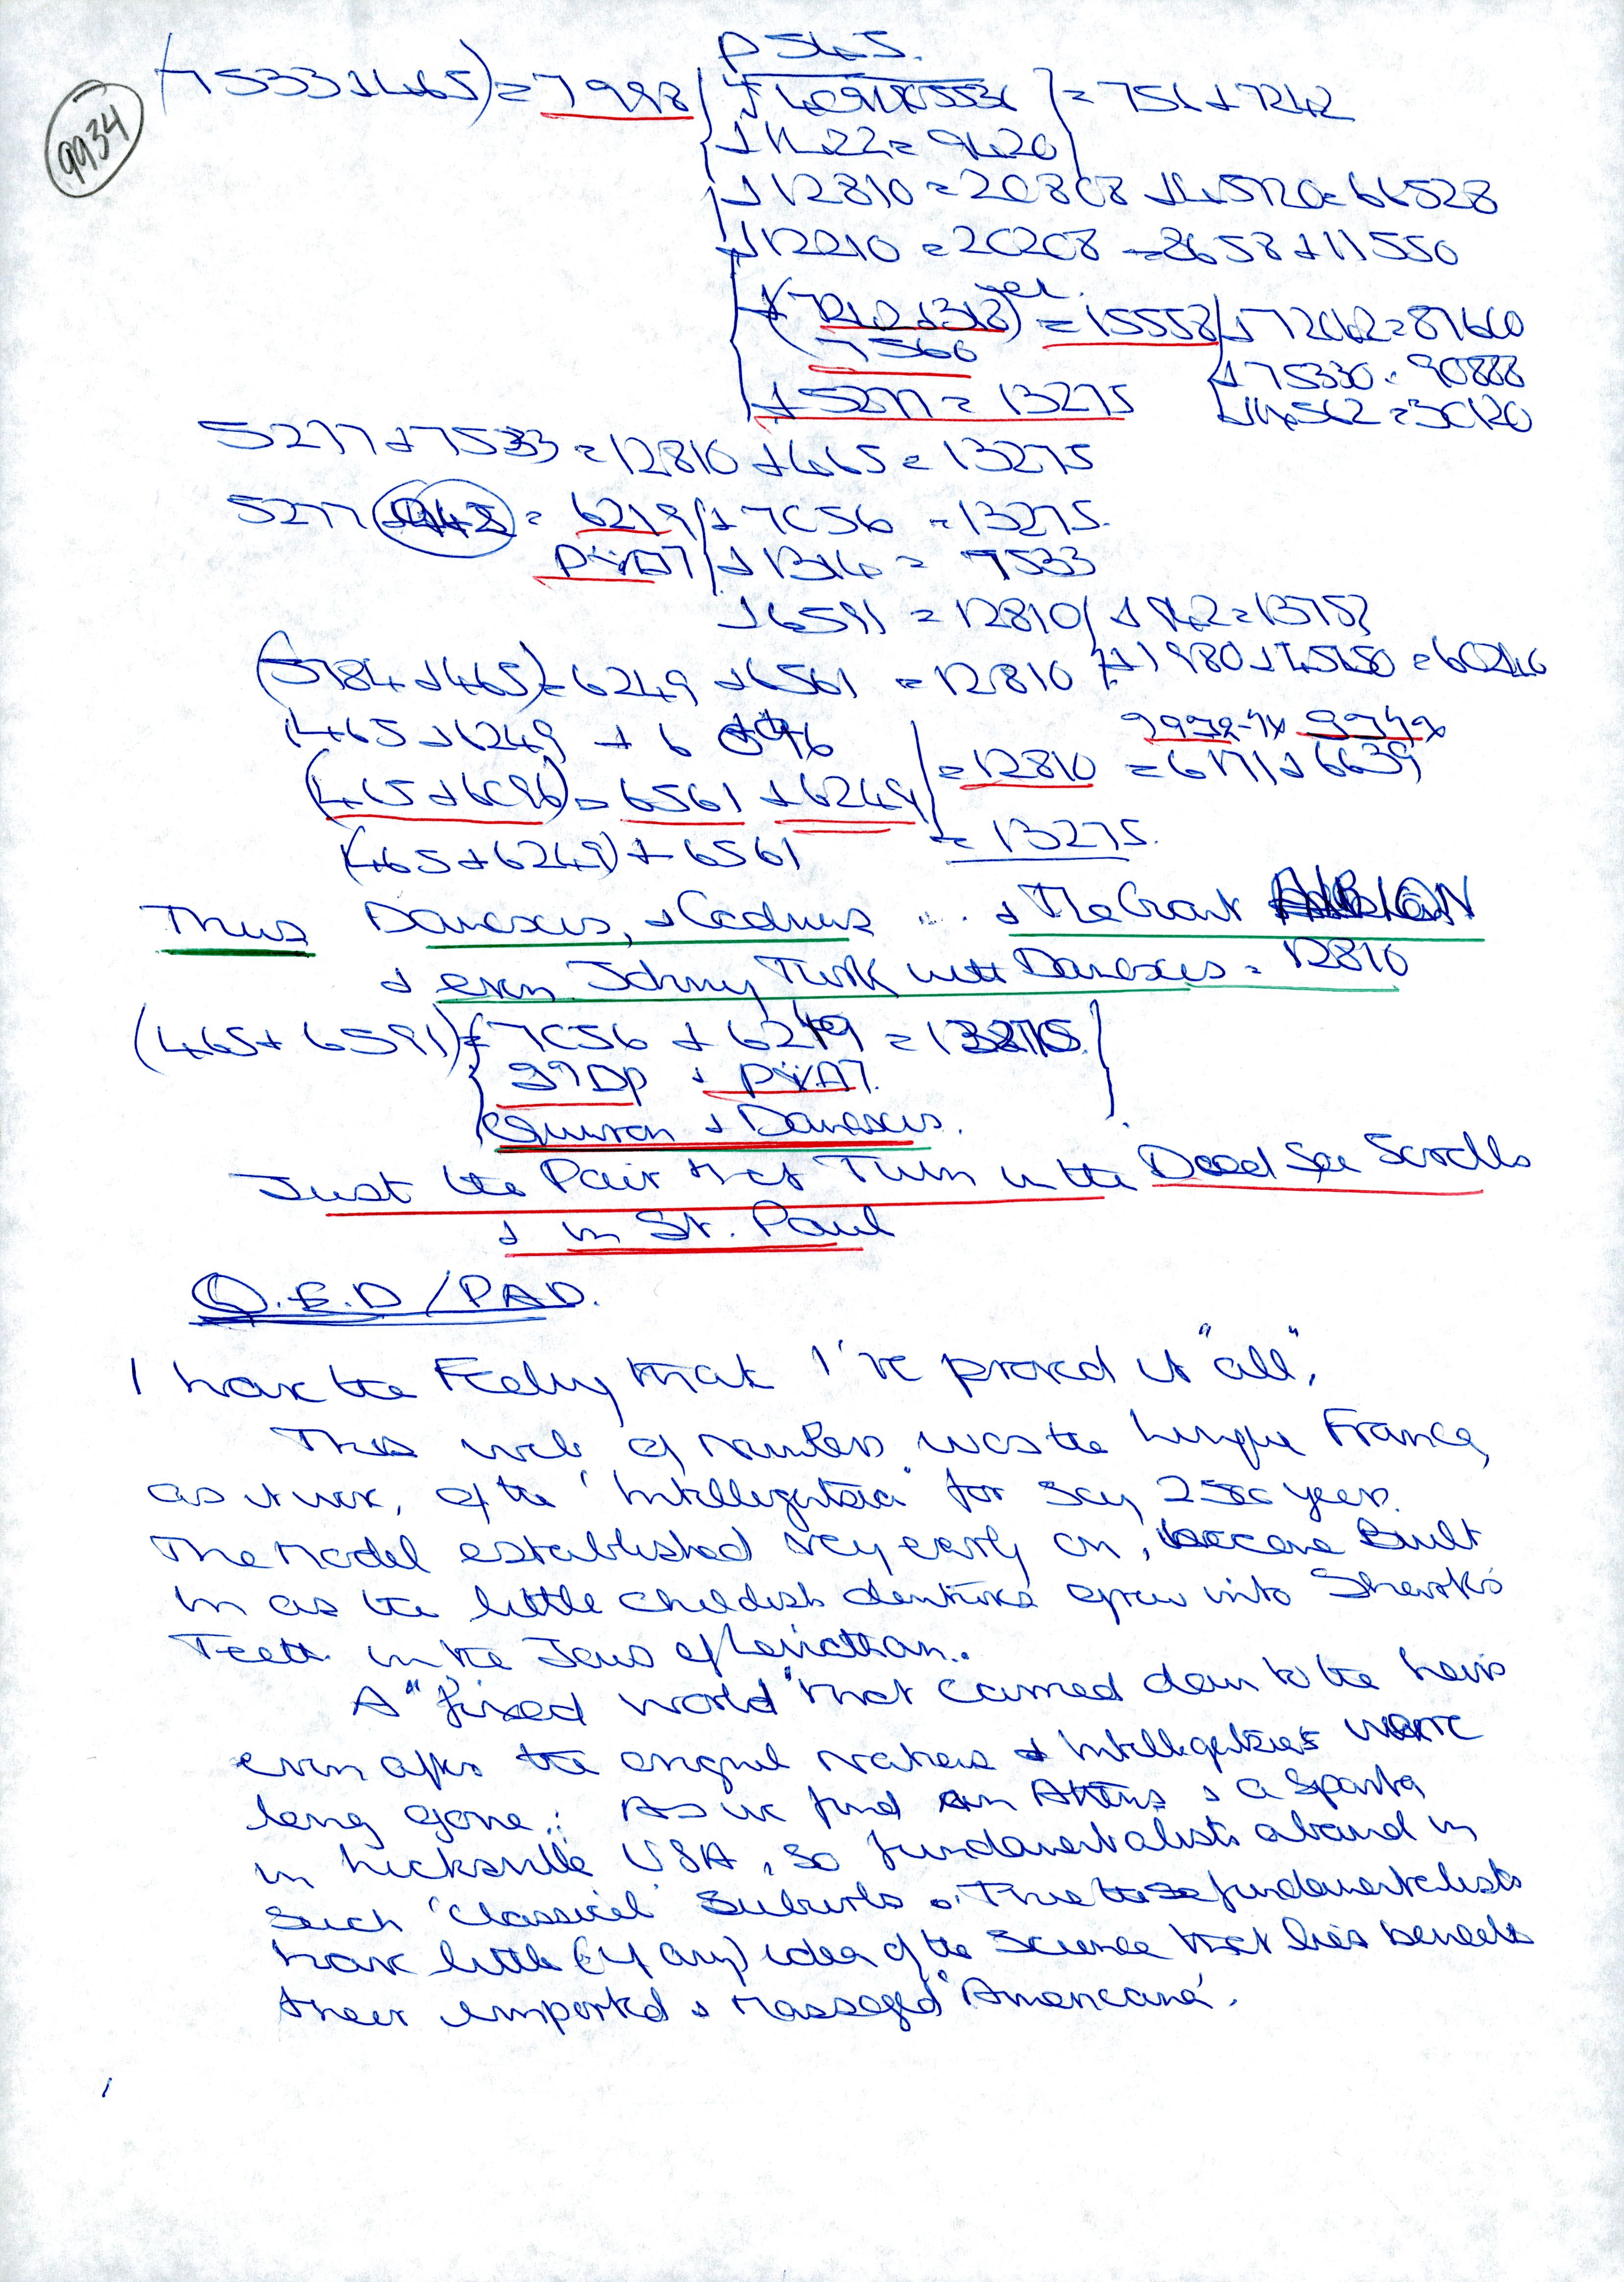 9934
p 545.
(7533+465) = 7998
= 756+7242
+1422 = 9420
+12810 = 20808 +45720 = 66528
+12210 = 20208 = 8658+11550
= 15558 +72042 = 87600
7560
+75330 = 90888
+5277 = 13275
+14562 = 30120
5277+7533 = 12810 +465 = 13275
5277 +942 = 6219 +7056 = 13275.
+1314 = 7533
+6591 = 12810
+1980
(5784+465) = 6249 +6561 = 12810
465+6249 + 6096
(465+6096) = 6561 +6249 = 12810 = 6171+6639
(465+6249)+6561 = 13275.
Thus Damascus, + Cadmus ... + The Giant ALBION
+ even Johnny Turk with Damascus = 12810
(465+6591) = 7056 + 6219 = 13275
Qumran + Damascus.
Just the Pair that Turn in the Dead Sea Scrolls
+ in St. Paul
Q.E.D/PAD.
I have the Feeling that I've proved it "all".
This web of numbers was the Lingua Franca,
as it were, of the 'Intelligentsia' for say, 2500 years.
The Model established very early on, became Built
in as the little childish dentures grew into Shark's
Teeth in the Jaws of Leviathan.
A "fixed world" that carried down to the heirs
even after the original makers + Intelligentsia were
long gone. As we find an Athens + a Sparta
in hicksville USA, so fundamentalists abound in
such 'Classical' Suburbs. these fundamentalists
have little (if any) idea of the Science that lies beneath
their imported + massaged 'Americana'.